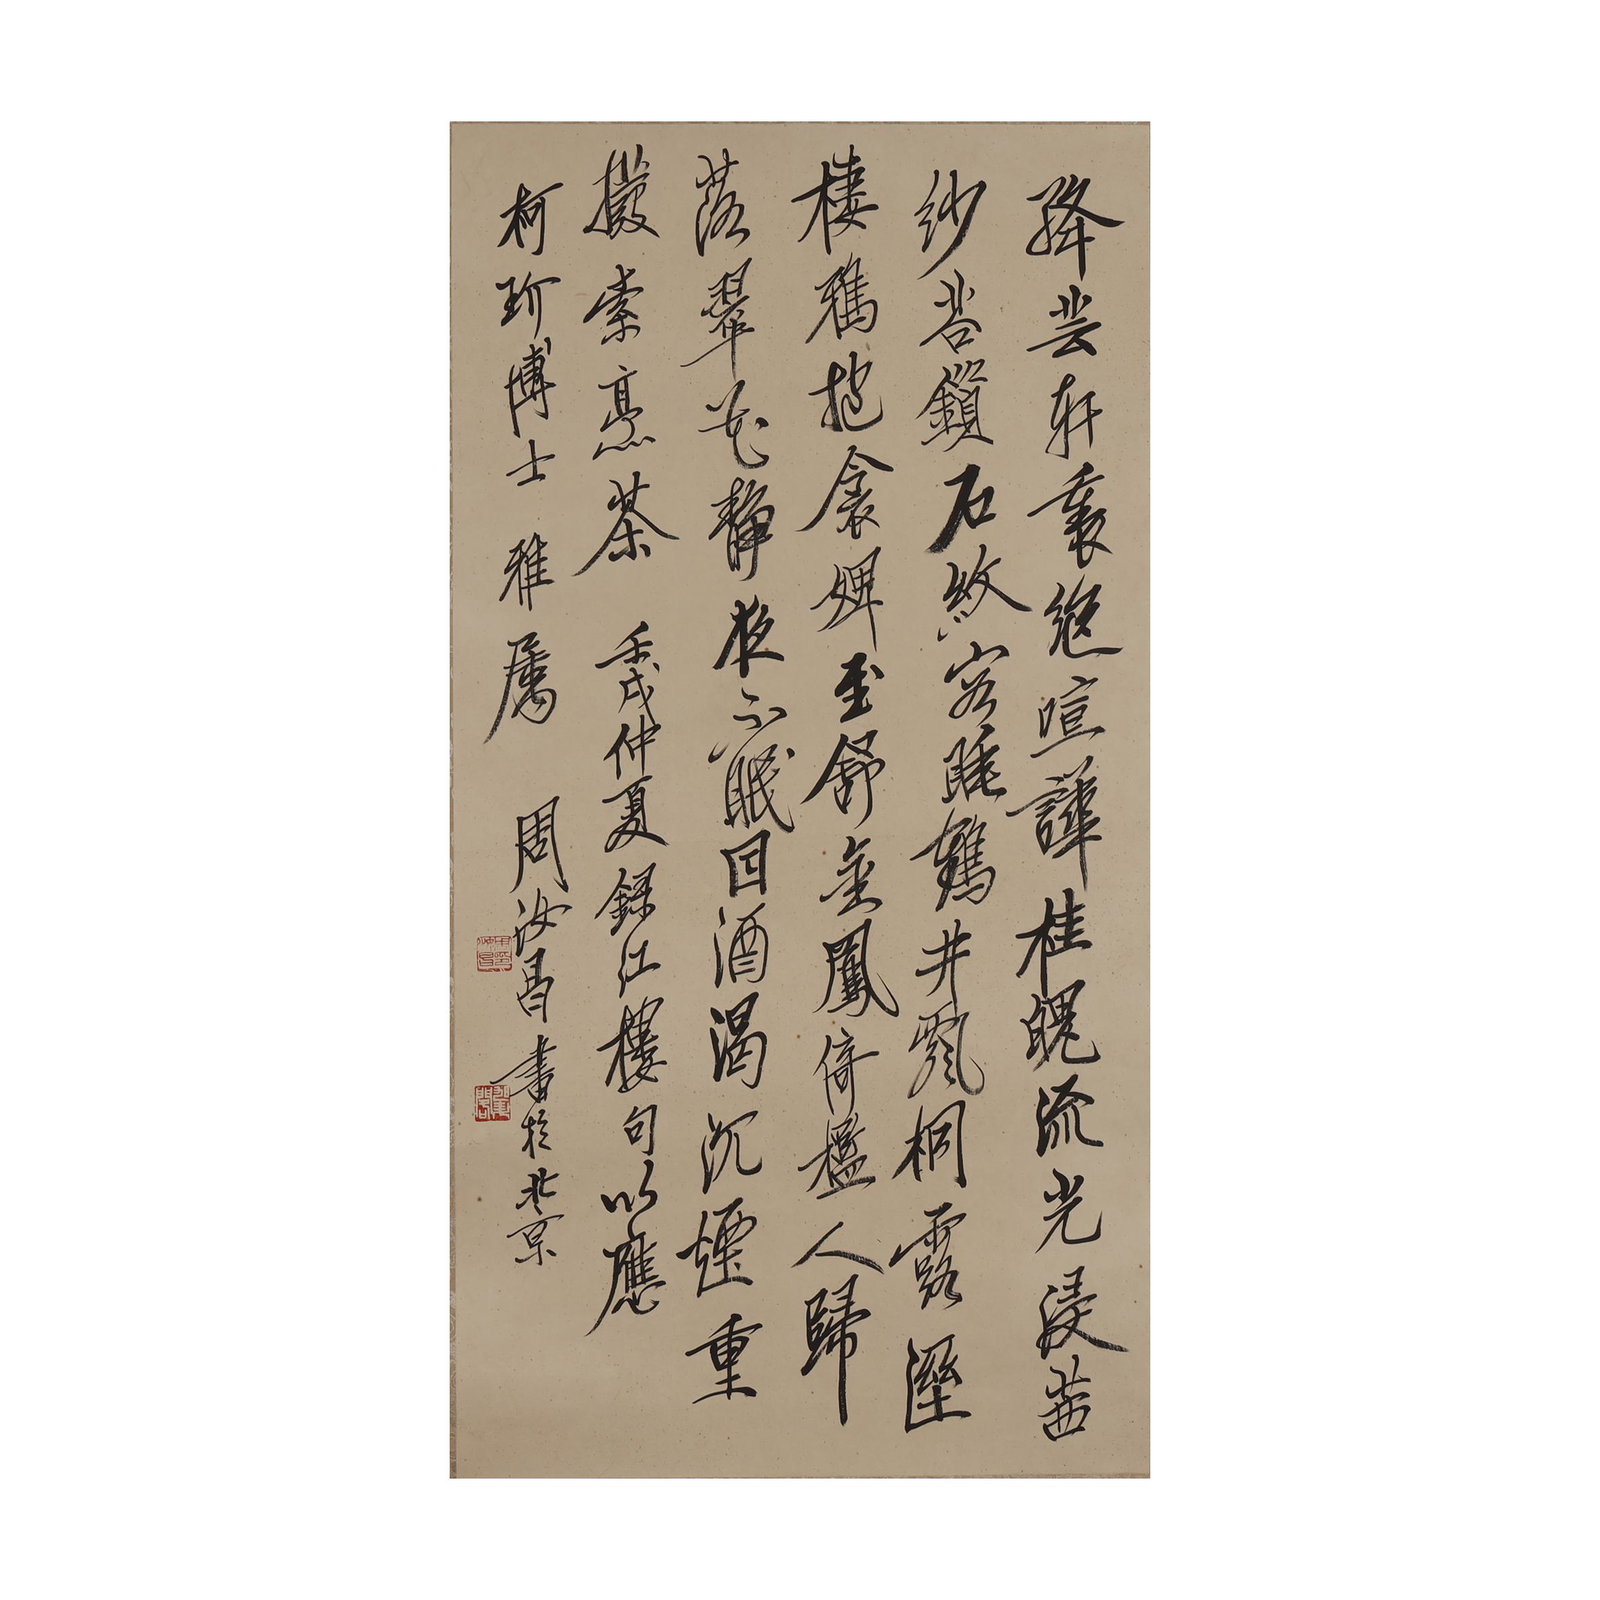 絳芸軒裏絶喧譁桂魄流光浸茜
紗苔鎖石紋容睡鶴井飄桐露溼
棲鴉抱衾婢至舒金鳳倚檻人歸
落翠花靜夜不眠因酒渴沉煙重
撥索烹茶 壬戌仲夏錄紅樓句以應
柯珍博士雅屬 周汝昌書於北京
周汝昌